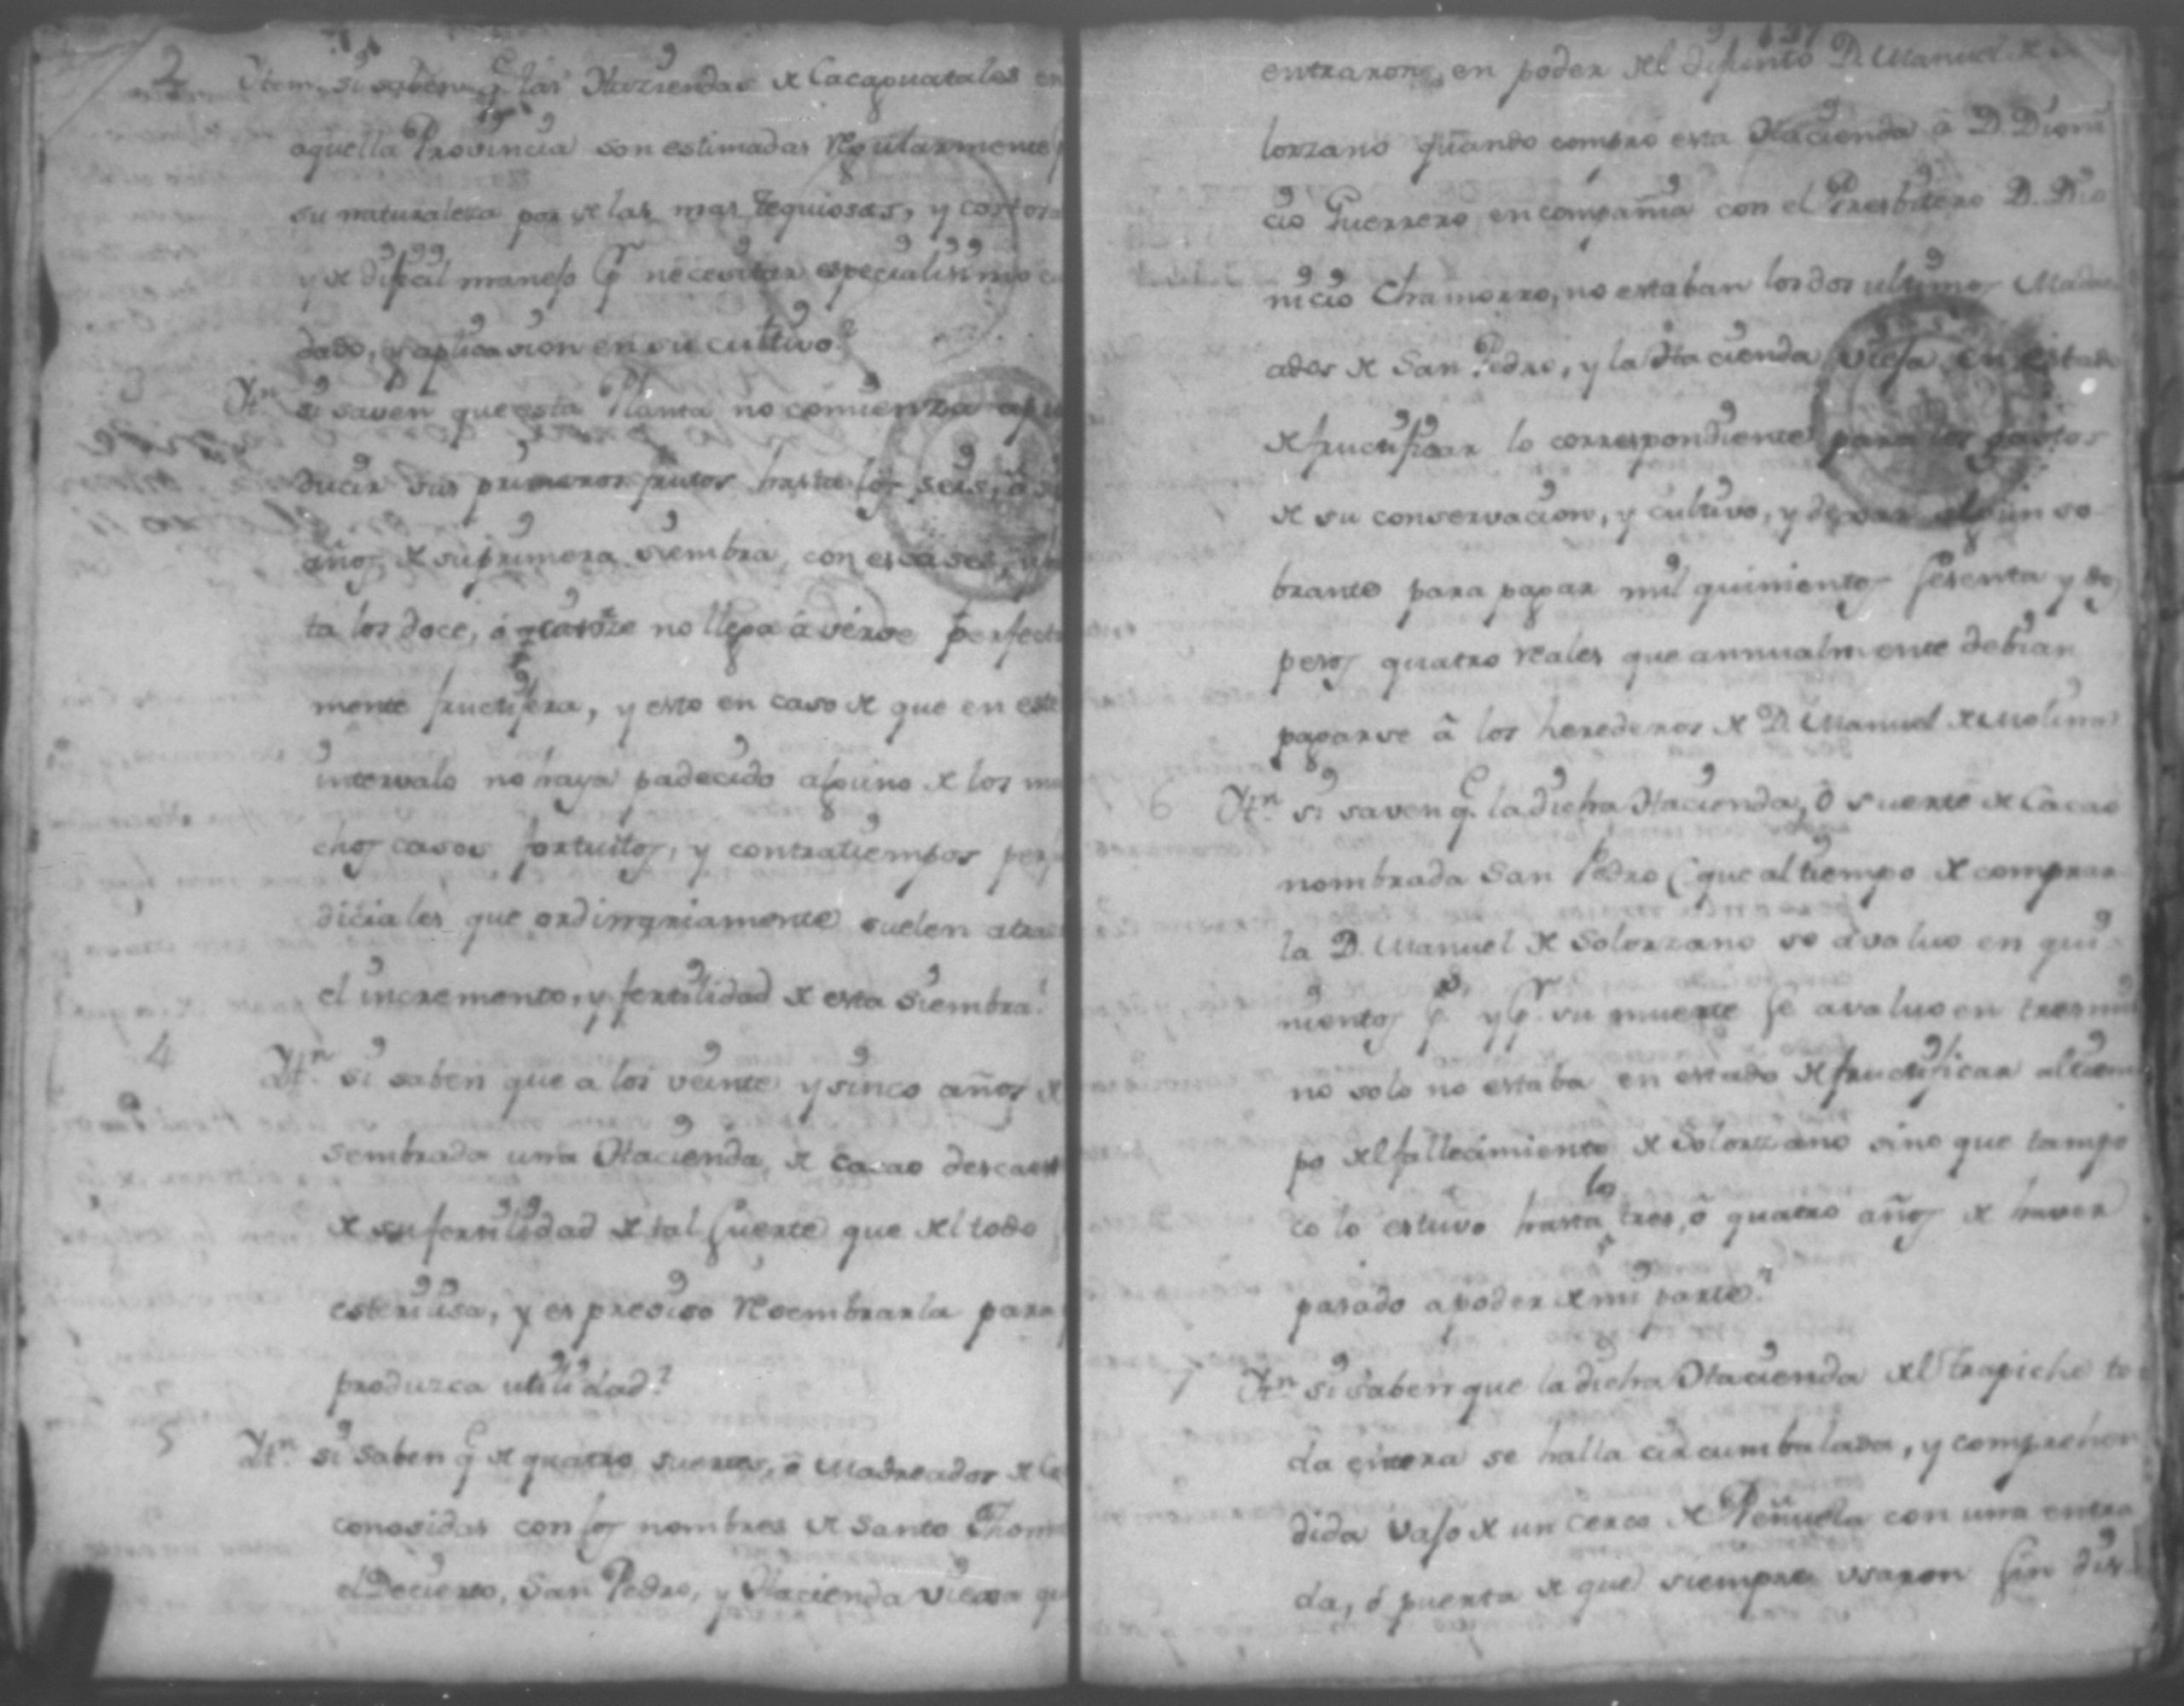 2 Item, si saben q.e las Haziendas de Cacaguatales en
aquella Provincia son estimadas Regularmente
su naturaleza por de las mas requiosas, y costosas
y de dificil manejo p.r necesitar especialisimo cui
dado, y aplicasion en su cultivo?
3 Yt.n si saven que esta Planta no comienza a pro
ducir sus primeros frutos hasta los seis, ó
años de su primera siembra, con escases,
ta los doce, ó catorze no llega á verse perfecta
mente fructifera, y esto en caso de que en este
intervalo no haya padecido alguno de los mu
chos casos fortuitos, y contratiempos perju
diciales que ordinariamente suelen atrasar
el incremento, y fertilidad de esta siembra?
4 Yt.n si saben que a los veinte y sinco años de
sembrada una Hacienda de cacao descaese
de su fertilidad de tal suerte que del todo
esterilisa, y es preciso Resembrarla para
produzca utilidad?
5 Yt.n si saben q.e de quatro suertes, ó Madreados de Ca
conosidas con los nombres de Santo Thom
el Decierto, San Pedro, y Hacienda Viexa qu
entraron, en poder del difunto D. Manuel de So
lorzano quando compró esta Hacienda á D. Dioni
cio Guerrero en compañia con el Presbitero D. Dio
nicio Chamorro, no estaban los dos ultimos Madre
ados de San Pedro, y la Hacienda Vieja en estado
de fructificar lo correspondiente para los gastos
de su conservacion, y cultivo, y dexar algun so
brante para pagar mil quinientos sesenta y dos
pesos quatro Reales que annualmente debian
pagarse á los herederos de D. Manuel de Molina
6 Yt.n si saven q.e la dicha Hacienda, ó suerte de Cacao
nombrada San Pedro (que al tiempo de comprar
la D. Manuel de Solorzano se avaluo en qui
nientos p.s y p.r su muerte se avaluo en tres mil
no solo no estaba en estado de fructificar al tiem
po del fallecimiento de Solorzano sino que tampo
co lo estuvo hasta los tres, ó quatro años de haver
pasado a poder de mi parte?
7 Yt.n si saben que la dicha Hacienda del trapiche to
da entera se halla circumbalada, y comprehen
dida vajo de un cerco de Peñuela con una entra
da, ó puerta de que siempre usaron sin dis